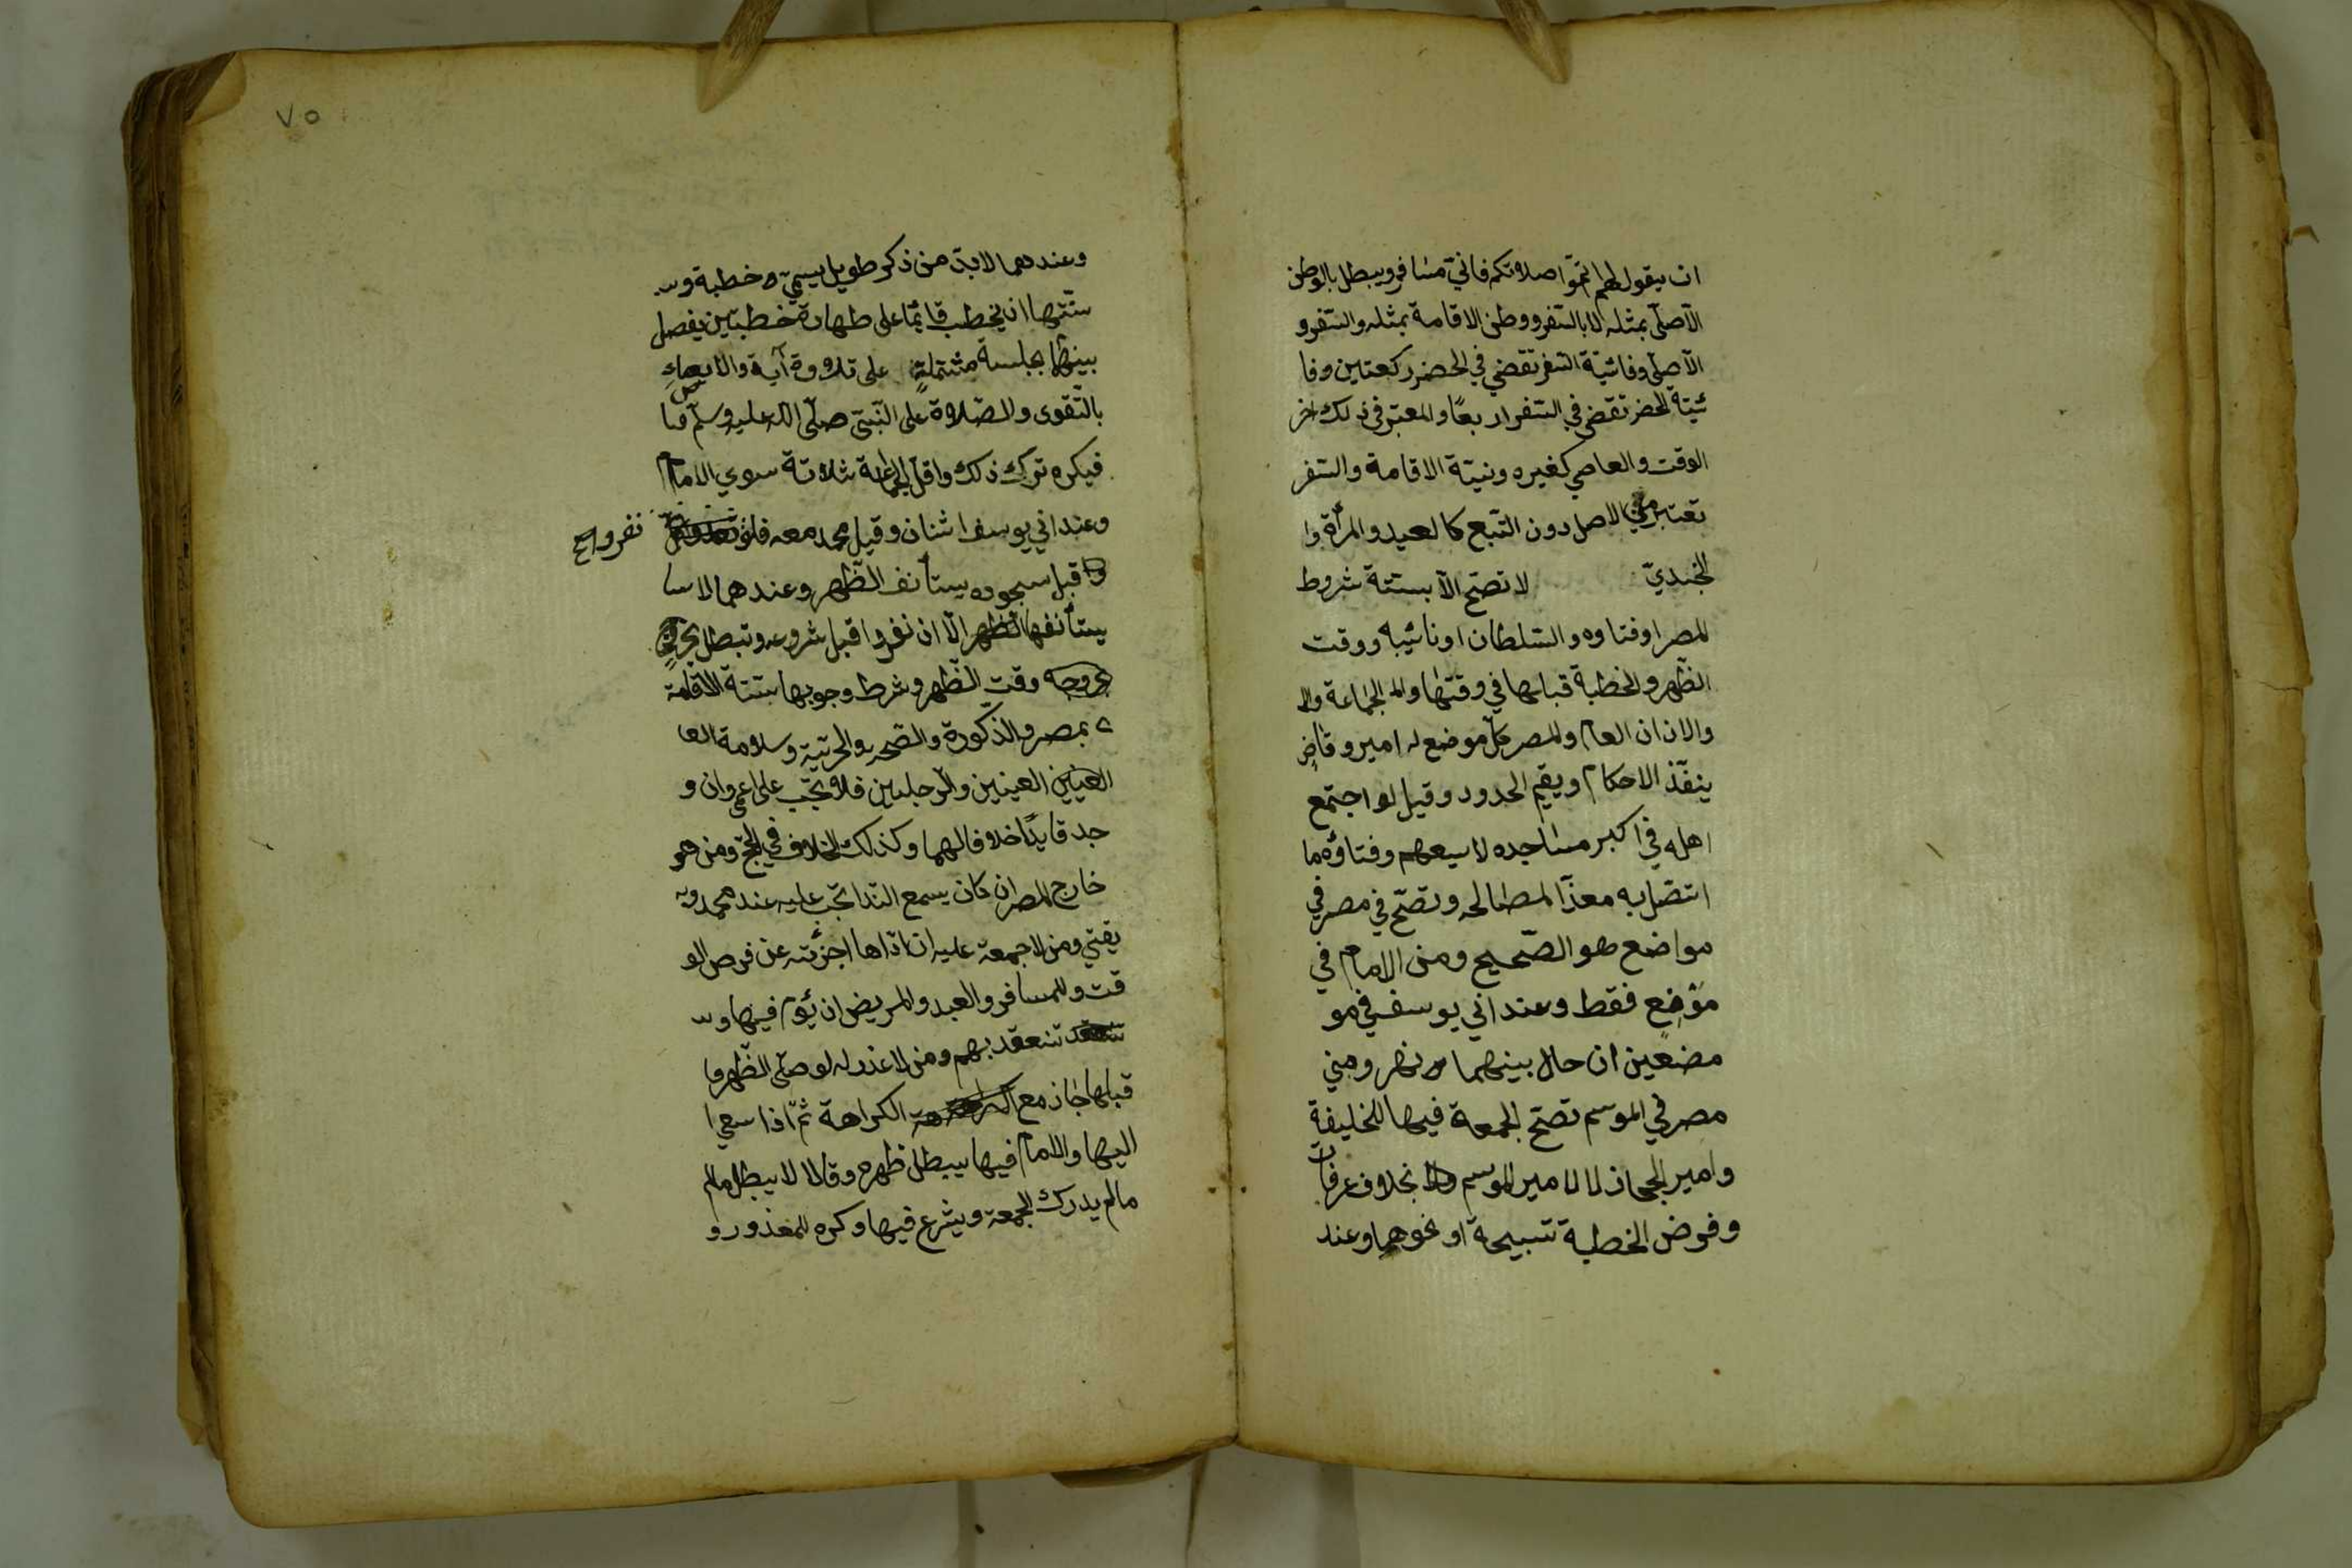 ان يقول لهم اتموّا صلاتكم فانيّ مسافر ويبطل بالوطن
الآصليّ بمثله لا بالسّفر ووطن الاقامة بمثله والسّفر و
الآصليّ وفائيتة السّفر تقضي في الحضر ركعتين وفا
ئيتة الحضر تقضي في السّفر اربعًا والمعتبر في ذلك اخر
الوقت والعاصي كغيره ونيّة الاقامة والسّفر
تعتبر من الاصل دون التّبع كالعبد والمرأة وا
لجنديّ لا تصحّ الّا بستّة شروط
المصر او فناوه والسّلطان او نائيبه ووقت
الظّهر والخطبة قبلها في وقتها والجماعة وال
والاذان العام والمصر كلّ موضع له امير وقاضٍ
ينفّذ الاحكام ويقيم الحدود وقيل لو اجتمع
اهله في اكبر مساجده لا يسعهم وفناؤه ما
اتّصل به معدّا لمصالحه وتصحّ في مصر في
مواضع هو الصّحيح ومن الامام في
موضِعٍ فقط وعند ابي يوسف في مو
مضعين ان حال بينهما نهر ومني
مصر في الموسم تصحّ الجمعة فيها للخليفة
وامير الحجاز لا لامير الموسم ولا بخلاف عرفات
وفرض الخطبة تسبيحة او نحوهما وعند
وعندهما لا بدّ من ذكر طويل يسميّ خطبة وس
سنّتها ان يخطب قائمًا على طهارة خطبتين يفصل
بينهما بجلسة مشتملةٍ على تلاوة آية والايصاءِ
بالتّقوى والصّلاة على النّبيّ صلّى الله عليه وسلّم فيا
فيكره ترك ذلك واقلّ الجماعة ثلاثة سوي الامام
وعند ابي يوسف اثنان وقيل محمد معه فلو نفروا صح
قبل سجوده يستأنف الظّهر وعندهما لا سا
يستأنفها الظهر الّا ان نفروا قبل شروعه وتبطل بخروج
خروجه وقت الظّهر وشرط وجوبها ستّة الاقامة
بمصر والذّكورة والصّحّة والحريّة وسلامة العا
العينين العينين والرّجلين فلا تجّب على اعمى وان و
جد قايدًا خلافا لهما وكذلك الخلاف في الحجّ ومن هو
خارج المصر ان كان يسمع النّدا تجّب عليه عند محمد وبه
يفتي ومن لا جمعة عليه ان ادّاها اجزئته عن فرض الو
قت وللمسافر والعبد والمريض ان يؤم فيها وت
تنعقد تنعقد بهم ومن لا عذر له لو صلّى الظّهر فا
قبلها جاز مع الكراهة الكراهة ثمّ اذا سعى ا
اليها والامام فيها يبطل ظهره وقالا لا يبطل مالم
مالم يدرك الجمعة ويشرع فيها وكره للمعذور و
٧٥